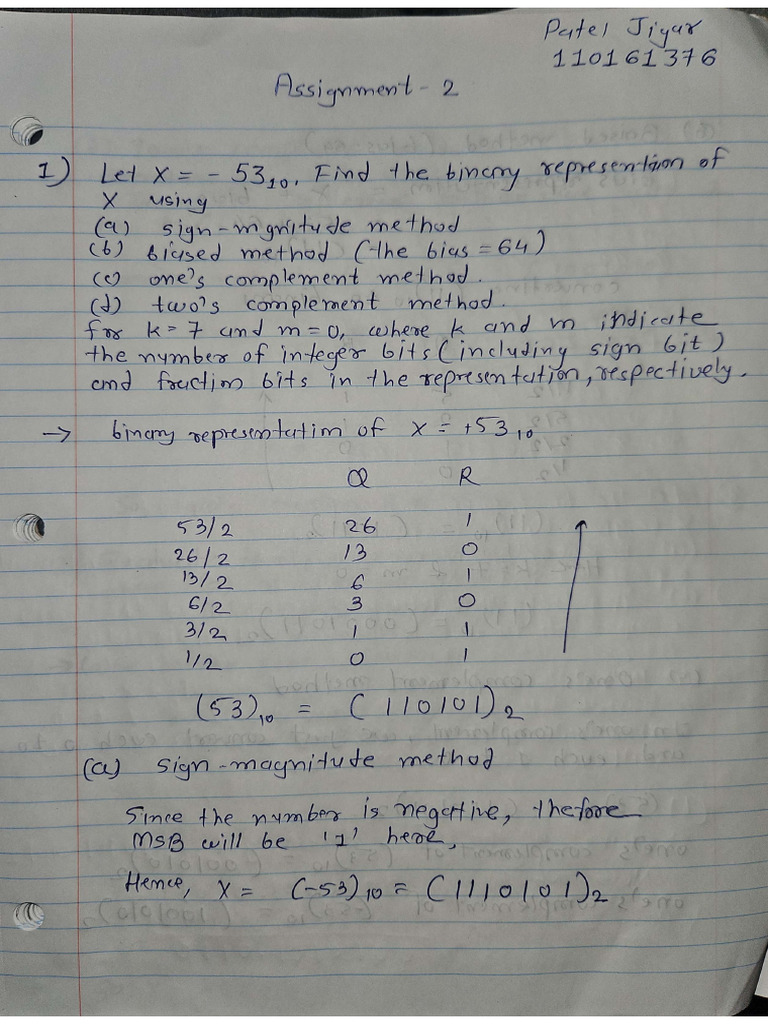 Patel Jigar
110161376
Assignment - 2
1) Let X = - 53₁₀. Find the binary representation of
X using
(a) sign-mgnitude method
(b) biased method (the bias = 64)
(c) one's complement method.
(d) two's complement method.
for k = 7 and m = 0, where k and m indicate
the number of integer bits (including sign bit)
and fraction bits in the representation, respectively.
→ binary representation of X = +53₁₀
Q R
53/2 26 1
26/2 13 0
13/2 6 1
6/2 3 0
3/2 1 1
1/2 0 1
(53)₁₀ = (110101)₂
(a) sign-magnitude method
Since the number is negative, thefore
MSB will be '1' here,
Hence, X = (-53)₁₀ = (1110101)₂